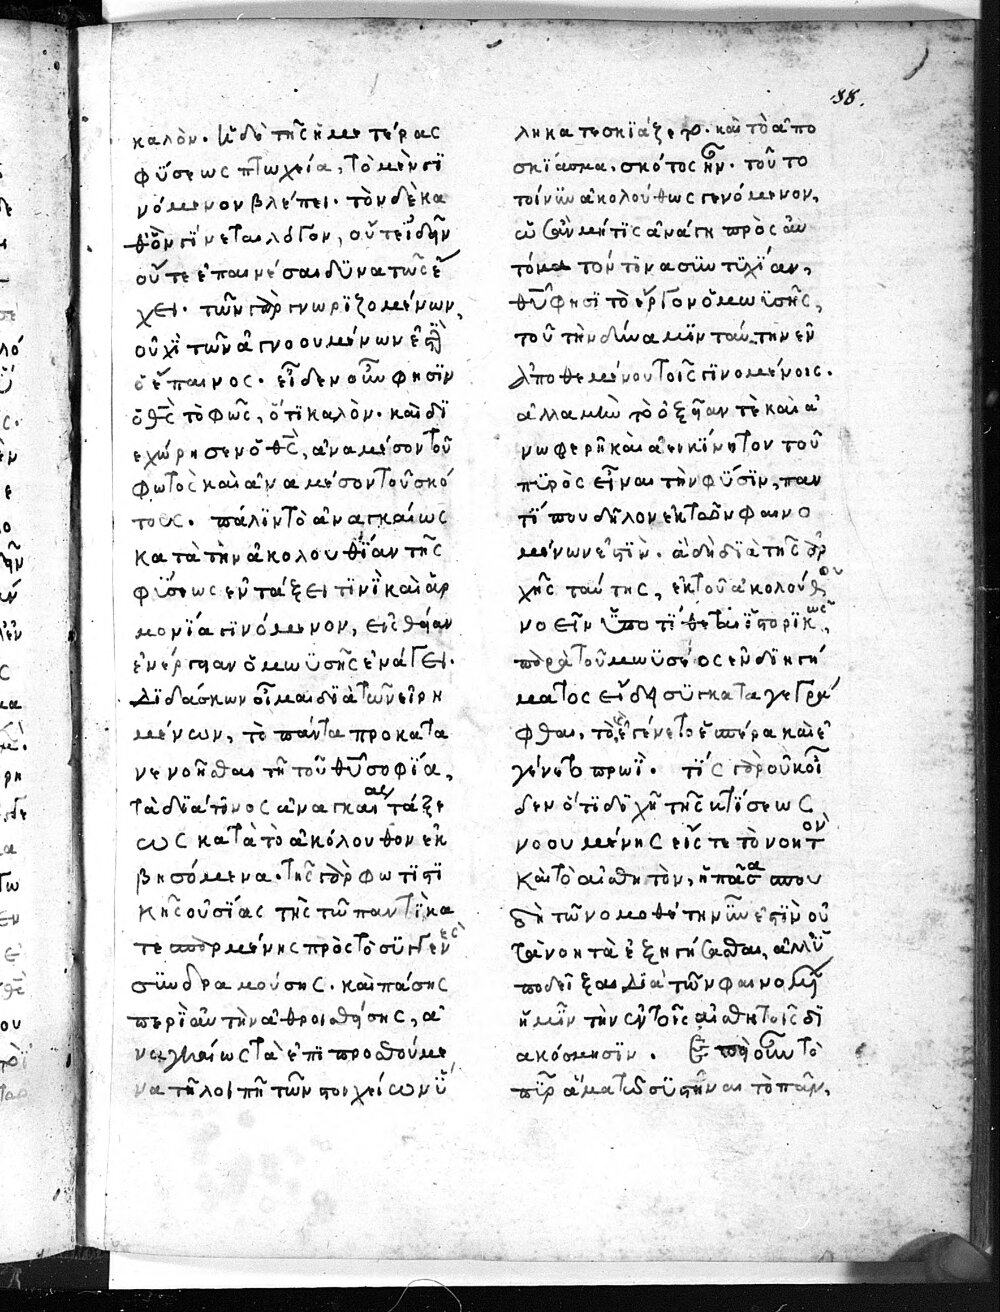 88.
καλὸν. ἡ δὲ τῆς ἡμετέρας
φύσεως πτωχεία, τὸ μὲν γϊ
νόμενον βλέπει. τὸν δὲ κα
θὃν γίνεται λόγον, οὔτε ἰδεῖν
οὔτε ἐπαινέσαι δϋνατῶς ἔ
χει. τῶν γὰρ γνωρϊζομένων,
οὐχὶ τῶν ἀγνοουμένων ἐστὶ
ὁ ἔπαινος. εἶδεν οὖν φησϊν
ὁ θς τὸ φῶς, ὅτι καλὸν. καὶ δϊ
εχώρησεν ὁ θς, ἀναμέσον τοῦ
φωτὸς καὶ ἀναμέσον τοῦ σκό
τους. πάλϊν τὸ ἀναγκαίως
κατὰ τὴν ἀκολουθΐαν τῆς
φύσεως ἐν τάξει τινὶ καὶ ἁρ
μονία γϊνόμενον, εἰς θείαν
ἐνέργειαν ὁ μωϋσῆς ἀνάγει.
διδάσκων οἶμαι διὰ τῶν εἰρη
μένων, τὸ πάντα προκατα
νενοῆσθαι τῆ τοῦ θυ σοφία,
τὰ διά τινος ἀναγκαίας τάξε
ως κατὰ τὸ ἀκόλουθον ἐκ
βησόμενα. τῆς γὰρ φωτϊστϊ
κῆς οὐσίας τῆς τῶ παντὶ κα
τεσπαρμένης πρὸς τὸ συγγενὲς
σϋνδραμούσης. καὶ πάσης
περὶ αὐτὴν ἀθροισθείσης, ἀ
ναγκαίως τὰ ἐπιπροσθούμε
να τῆ λοιπῆ τῶν στοιχείων ὕ
λη κατεσκϊάζετο. καὶ τὸ ἀπο
σκΐασμα, σκότος ἦν. τοῦτο
τοίνϋν ἀκολούθως γενόμενον,
ὡς ἂν μή τις ἀνάγη πρὸς αὐ
τόματον τινα σϋντϋχΐαν,
θυ φησὶ τὸ ἔργον ὁ μωϋσῆς,
τοῦ τὴν δύναμϊν ταύτην ἐν
αποθεμένου τοῖς γϊνομένοις.
ἀλλὰ μὴν τὸ ὀξεῖαν τὲ καὶ ἀ
νωφερῆ καὶ ἀεικίνητον τοῦ
πϋρὸς εἶναι τὴν φύσϊν, παν
τί που δῆλον ἐκ τῶν φαινο
μένων ἐστὶν. ἃ δὴ διὰ τῆς ἀρ
χῆς ταύτης, ἐκ τοῦ ἀκολούθου
νοεῖν ὑποτίθεται ϊστορϊκῶς,
παρὰ τοῦ μωϋσέος ἐν διηγή
ματος εἴδη σϋγκαταγεγρά
φθαι, τὸ, ἐγένετο ἑσπέρα καὶ ἐ
γένετο πρωΐ. τίς γὰρ οὐκ οἶ
δεν ὅτι διχῆ τῆς κτίσεως
νοουμένης εἴς τε τὸ νοητὸν
καὶ τὸ αἰσθητὸν, ἡ πᾶσα σπου
δὴ τῶ νομοθέτη νῦν ἐστὶν οὐ
τὰ νοητὰ ἐξηγήσασθαι, ἀλλ' ὑ
ποδεῖξαι διὰ τῶν φαινομένων
ἡμῖν τὴν ἐν τοῖς αἰσθητοῖς δϊ
ακόσμησϊν. ἐπεὶ οὖν τὸ
πῦρ ἅμα τῶ σϋστῆναι τὸ πᾶν,